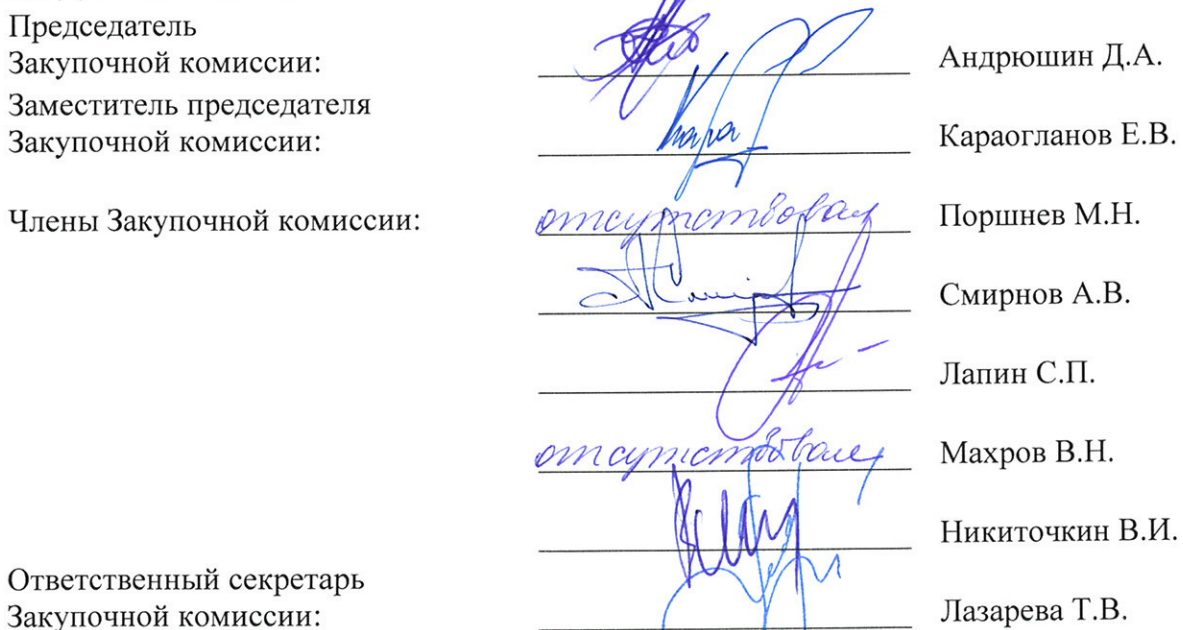 Председатель
Закупочной комиссии: Андрюшин Д.А.
Заместитель председателя
Закупочной комиссии: Караогланов Е.В.
Члены Закупочной комиссии: отсутствовал Поршнев М.Н.
Смирнов А.В.
Лапин С.П.
отсутствовал Махров В.Н.
Никиточкин В.И.
Ответственный секретарь
Закупочной комиссии: Лазарева Т.В.